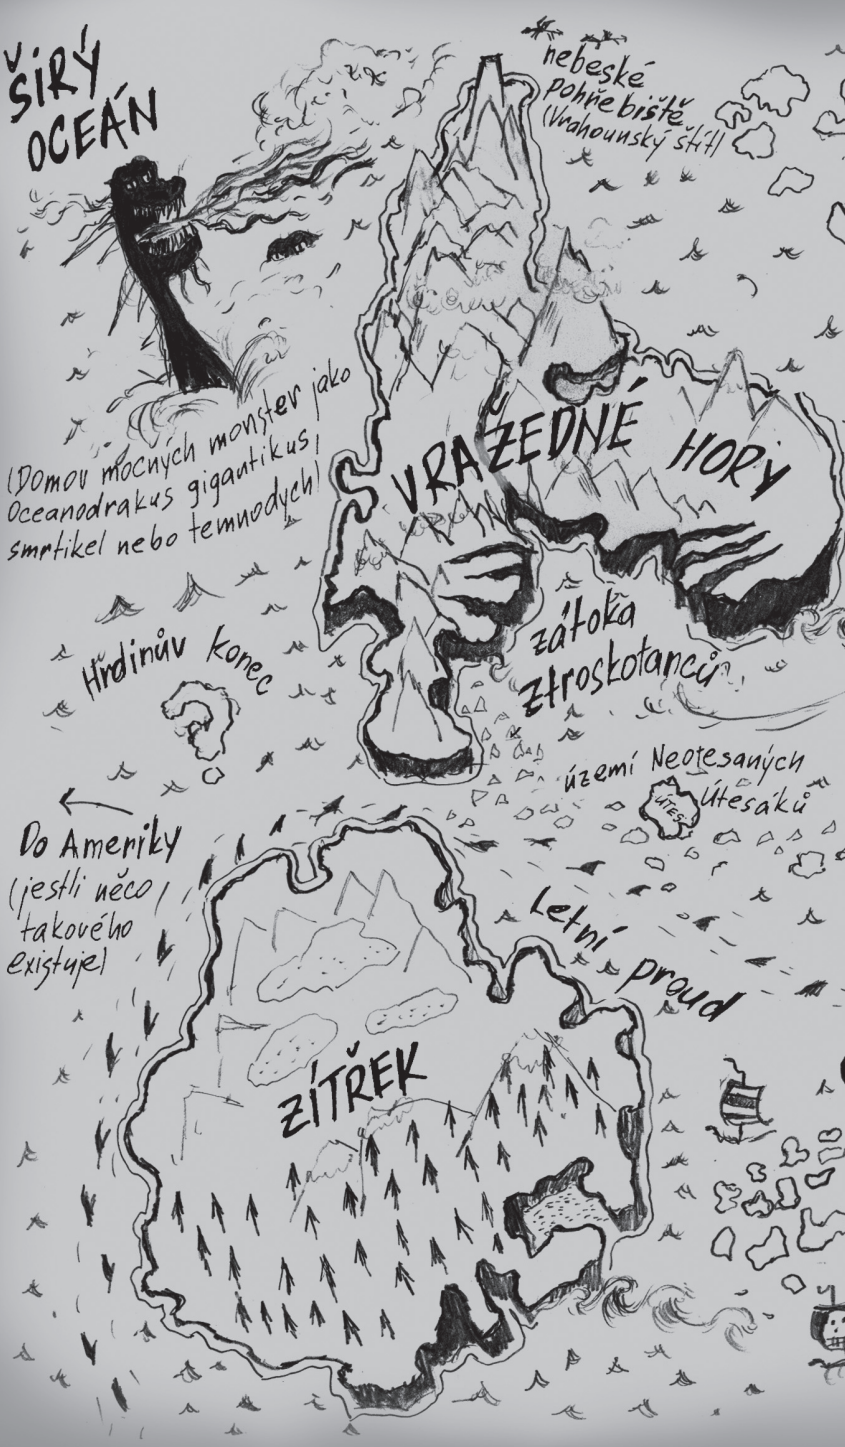 ŠIRÝ
OCEÁN
nebeské
pohřebiště
(Vrahounský štít)
VRAŽEDNÉ HORY
(Domov mocných monster jako
Oceanodrakus gigantikus,
smrtikel nebo temnodych)
zátoka
ztroskotanců
Hrdinův konec
území Neotesaných
Útesáků
ÚTES
Do Ameriky
(jestli něco
takového
existuje)
Letní proud
ZÍTŘEK